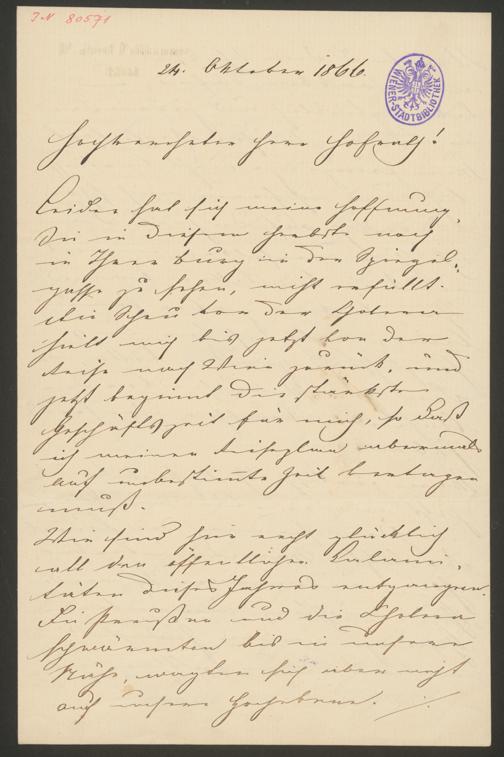 J.N. 80571
WIENER-STADTBIBLIOTHEK
24. Oktober 1866.
Hochverehrter Herr Hofrath!
Leider hat sich meine Hoffnung,
Sie in diesem Herbste noch
in Ihrer Burg in der Spiegel-
gasse zu sehen, nicht erfüllt.
Die Scheu vor der Cholera
hielt mich bis jetzt von der
Reise nach Wien zurück, und
jetzt beginnt die stärkste
Geschäftszeit für mich, so daß
ich meinen Reiseplan abermals
auf unbestimmte Zeit vertagen
muß.
Wir sind hier recht glücklich
all den öffentlichen Calami-
täten dieses Jahres entgangen.
Die Preußen und die Cholera
schwärmten bis in unsere
Nähe, wagten sich aber nicht
auf unsere Hochebene.